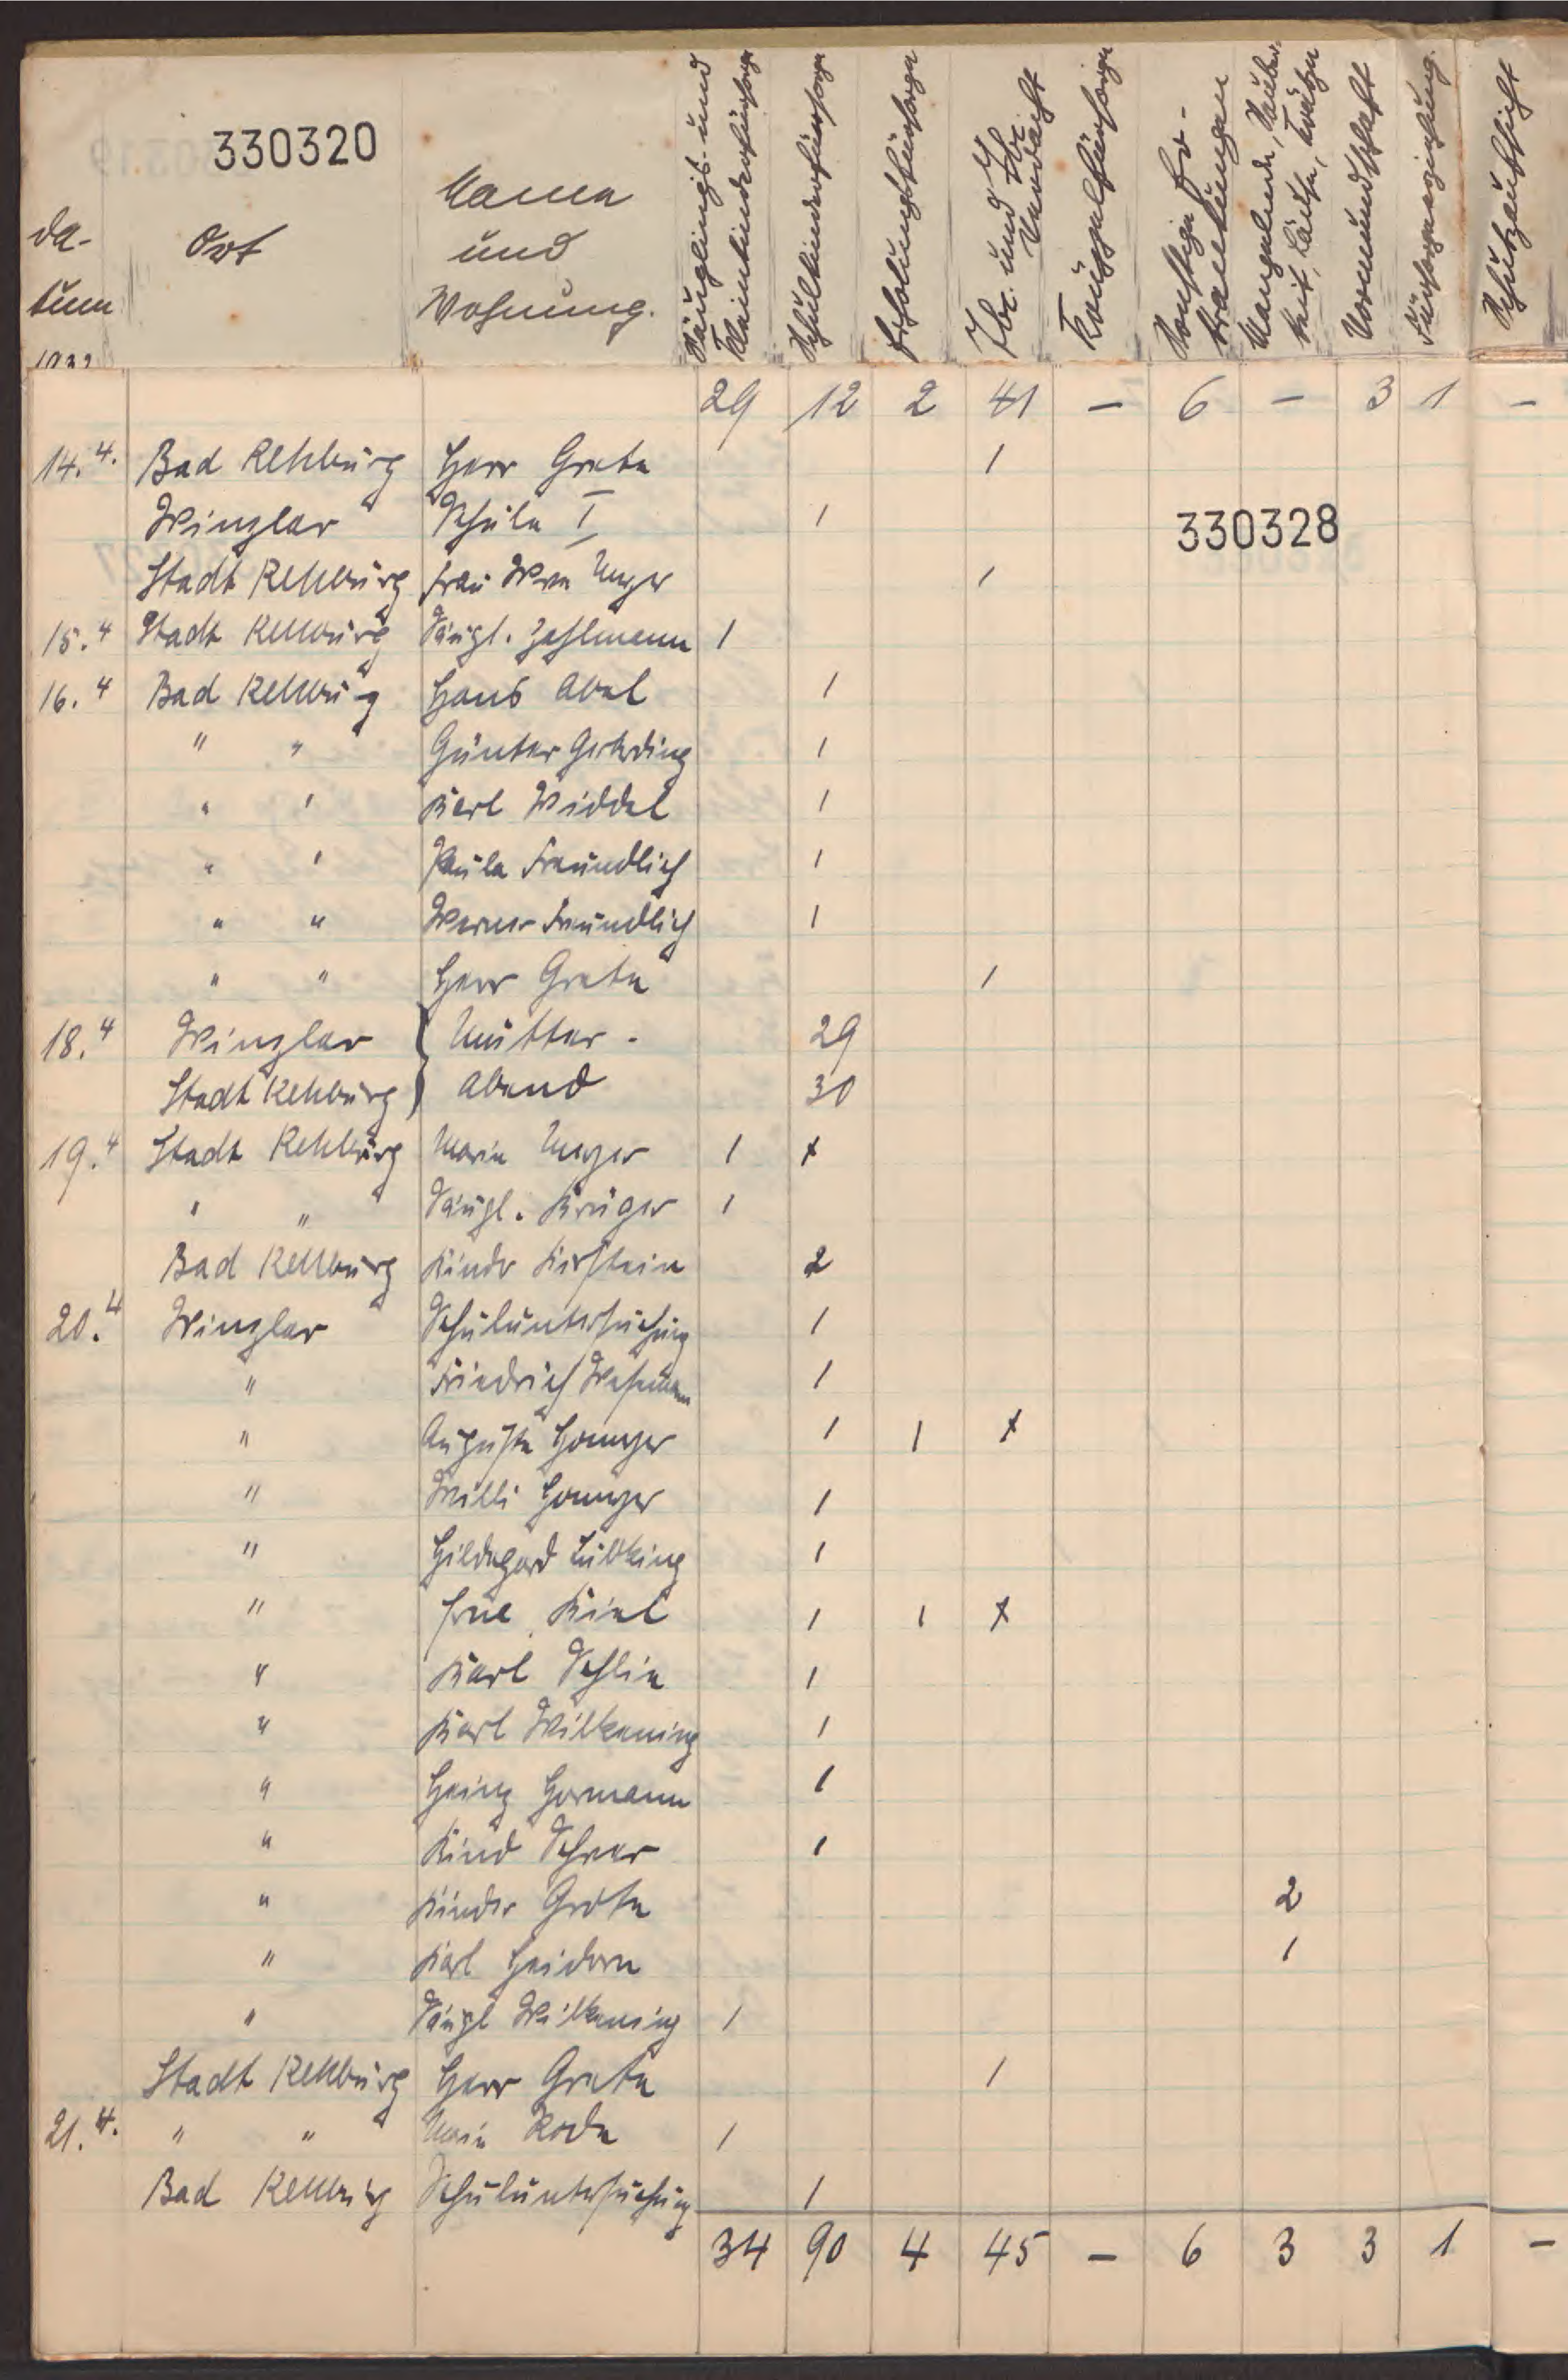 330320
Da-
tum
Ort
Namen
und
Wohnung.
Säuglings- und
Kleinkinderfürsorge
Schulkinderfürsorge
Erholungsfürsorge
Tbc. und Tbc.
Verdacht
Krüppelfürsorge
Sonstige Be-
tratungen
Mangelnde Sauber-
keit, Läuse, Krätze
Vormundschaft
Fürsorgeerziehung.
Schutzaufsicht
29 12 2 41 — 6 — 3 1 —
14.4. Bad Rehburg Herr Grete 1
Winzlar Schule I 1
330328
Stadt Rehburg Frau Wwe Meyer 1
15.4 Stadt Rehburg Säugl. Zahlmann 1
16.4 Bad Rehburg Hans Abel 1
" " Günter Gerberding 1
" " Karl Widdel 1
" " Paula Freundlich 1
" " Werner Freundlich 1
" " Herr Grete 1
18.4 Winzlar } Mütter- 29
Stadt Rehburg } abend 30
19.4 Stadt Rehburg Marie Meyer 1 x
" " Säugl. Krüger 1
Bad Rehburg Kinder Kirstein 2
20.4 Winzlar Schuluntersuchung 1
" Friedrich Wesemann 1
" Auguste Homeyer 1 1 x
" Willi Homeyer 1
" Hildegard Lübking 1
" Kiel 1 1 x
" Karl Schlie 1
" Karl Wilkening 1
" Heinz Hormann 1
" Kind Scheer 1
" Kinder Grote 2
" Karl Heidorn 1
" Säugl Wilkening 1
Stadt Rehburg Herr Grete 1
21.4. " " Marie Rode 1
Bad Rehburg Schuluntersuchung 1
34 90 4 45 — 6 3 3 1 —